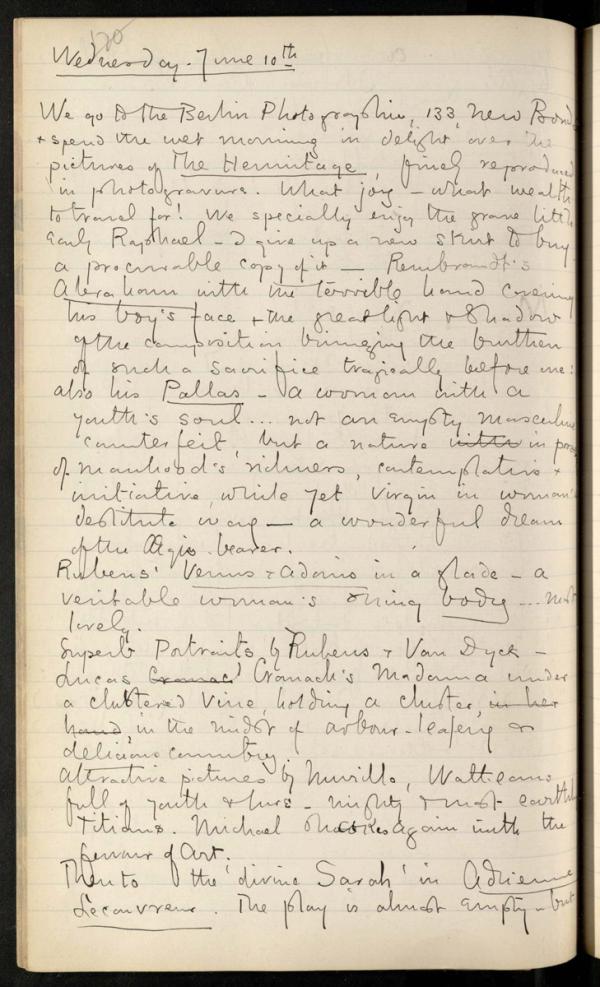 120
Wednesday. June 10th
We go to the Berlin Photographic, 133, New Bond
& spend the wet morning in delight over the
pictures of The Hermitage, finely reproduced
in photogravure. What joy – what wealth
to travel for! We specially enjoy the grave little
Early Raphael – I give up a new skirt to buy
a procurable copy of it — Rembrandt's
Abraham with the terrible hand covering
his boy's face & the great light & Shadow
of the composition bringing the burthen
of such a sacrifice tragically before me:
also his Pallas – a woman with a
youth's soul... not an empty masculine
counterfeit, but a nature with in poss
of manhood's richness, contemplative &
initiative, while yet virgin in woman's
destitute way — a wonderful dream
of the Ægis-bearer.
Rubens' Venus & Adonis in a glade – a
veritable woman's body ... most
lovely.
Superb Portraits by Rubens & Van Dyck –
Lucas Cranac Cranach's Madonna under
a clustered Vine, holding a cluster, in her
hand, in the midst of arbour-leafery &
delicious country.
Attractive pictures by Murillo, Watteaus
full of youth & – mighty & most earthly
Titians. Michael again with the
fervour of Art.
Then to the 'divine Sarah' in Adrienne
Lecouvreur. The play is almost empty – but